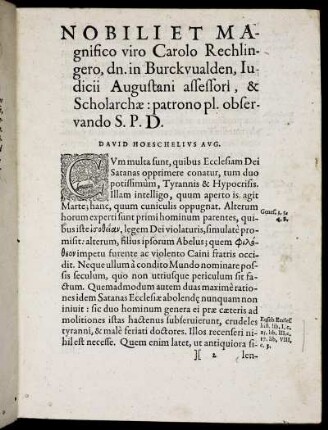 NOBILI ET MA-
gnifico viro Carolo Rechlin-
gero, dn. in Burckvualden, Iu-
dicii Augustani assessori, &
Scholarchæ: patrono pl. obser-
vando S. P. D.
DAVID HOESCHELIVS AVG.
CVm multa sunt, quibus Ecclesiam Dei
Satanas opprimere conatur, tum duo
potissimùm, Tyrannis & Hypocrisis.
Illam intelligo, quum aperto is agit
Marte; hanc, quum cuniculis oppugnat. Alterum
horum experti sunt primi hominum parentes, qui-
bus iste ἰσοθεΐαν, legem Dei violaturis, simulatè pro-
misit: alterum, filius ipsorum Abelus; quem φιλό-
θεον impetu furente ac violento Caini fratris occi-
dit. Neque ullum à condito Mundo nominare pos-
sis seculum, quo non utriusque periculum sit fa-
ctum. Quemadmodum autem duas maximè ratio-
nes idem Satanas Ecclesiæ abolendę nunquam non
iniuit: sic duo hominum genera ei præ cæteris ad
molitiones istas hactenus subseruierunt, crudeles
tyranni, & malè feriati doctores. Illos recenseri ni-
hil est necesse. Quem enim latet, ut antiquiora si-
)( 2 len-
Genes. 3. &
4. 8.
Euseb. Eccles.
hist. lib. I, c.